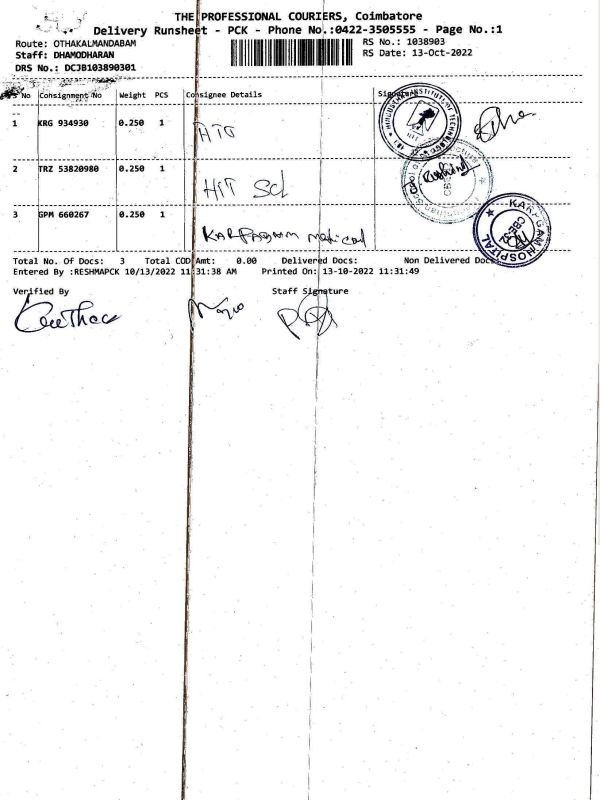 THE PROFESSIONAL COURIERS, Coimbatore
Delivery Runsheet - PCK - Phone No.:0422-3505555 - Page No.:1
Route: OTHAKALMANDABAM
Staff: DHAMODHARAN
DRS No.: DCJB103890301
RS No.: 1038903
RS Date: 13-Oct-2022
S No Consignment No Weight PCS Consignee Details
1 KRG 934930 0.250 1
HINDUSTHAN INSTITUTE OF TECHNOLOGY
2 TRZ 53820980 0.250 1 HIT Scl
3 GPM 660267 0.250 1 KARPAGAM medical
KARPAGAM HOSPITAL
Total No. Of Docs: 3 Total COD Amt: 0.00 Delivered Docs: Non Delivered Docs
Entered By :RESHMAPCK 10/13/2022 11:31:38 AM Printed On: 13-10-2022 11:31:49
Verified By Staff Signature